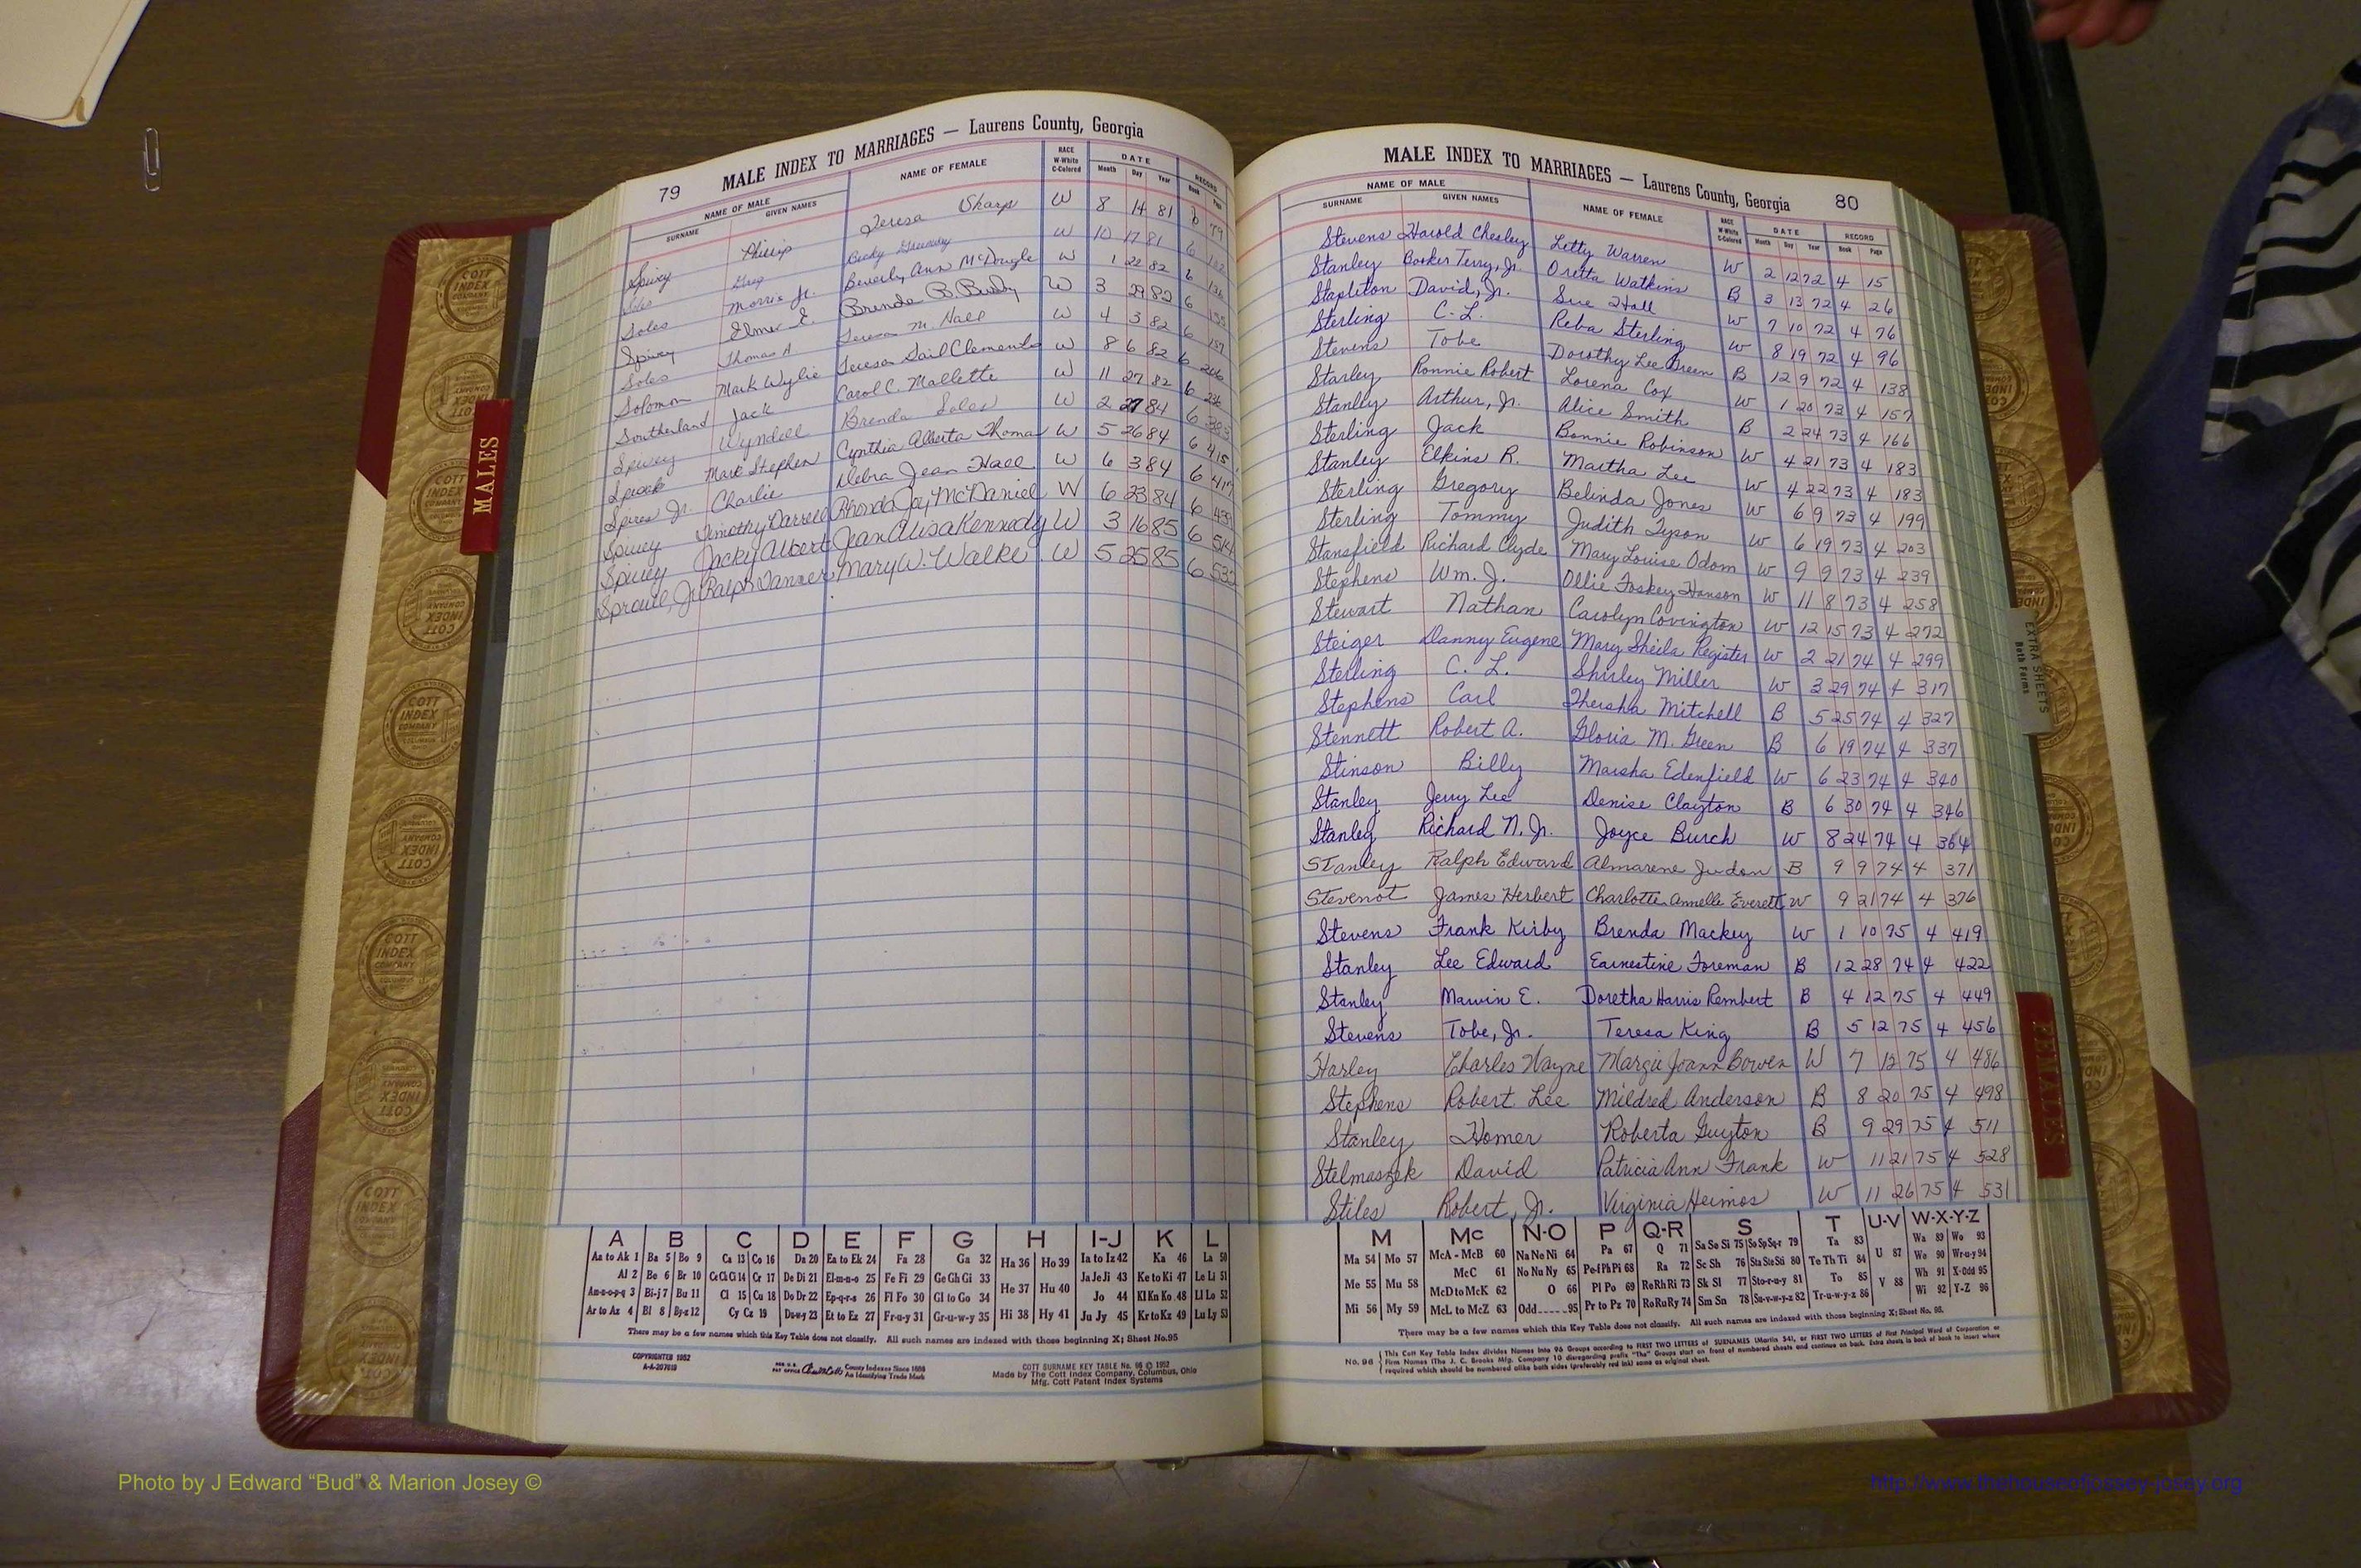 79 MALE INDEX TO MARRIAGES — Laurens County, Georgia
NAME OF MALE NAME OF FEMALE RACE W-White C-Colored DATE RECORD
SURNAME GIVEN NAMES Month Day Year Book Page
Spivey Phillip Teresa Sharpe W 8 14 81 6 79
Soles Greg Becky W 10 17 81 6
Soles Morris Jr. Beverly Ann McDougle W 1 22 82 6
Spivey Elmer E. Brenda B. W 3 29 82 6 155
Soles Thomas A Teresa M. Hall W 4 3 82 6 157
Solomon Mark Wylie Teresa Gail Clements W 8 6 82 6 206
Southerland Jack Carol C. Mallette W 11 27 82 6
Spivey Wyndell Brenda Soles W 2 27 84 6 383
Mark Stephen Cynthia Alberta Thomas W 5 26 84 6 415
Spires Jr. Charlie Debra Jean Hall W 6 3 84 6 417
Spivey Timothy Darrell Rhonda Joy McDaniel W 6 23 84 6 439
Spivey Jacky Albert Jean Alisa Kennedy W 3 16 85 6 514
Sproull, Jr. Ralph Tanner Mary W. Walke W 5 25 85 6 532
MALE INDEX TO MARRIAGES — Laurens County, Georgia 80
NAME OF MALE NAME OF FEMALE RACE W-White C-Colored DATE RECORD
SURNAME GIVEN NAMES Month Day Year Book Page
Stevens Harold Chesley Letty Warren W 2 12 72 4 15
Stanley Booker Terry, Jr. Oretta Watkins B 3 13 72 4 26
Stapleton David, Jr. Sue Hall W 7 10 72 4 76
Sterling C. L. Reba Sterling W 8 19 72 4 96
Stevens Tobe Dorothy Lee Green B 12 9 72 4 138
Starley Ronnie Robert Lorena Cox W 1 20 73 4 157
Stanley Arthur, Jr. Alice Smith B 2 24 73 4 166
Sterling Jack Bonnie Robinson W 4 21 73 4 183
Stanley Elkins R. Martha Lee W 4 22 73 4 183
Sterling Gregory Belinda Jones W 6 9 73 4 199
Sterling Tommy Judith Tyson W 6 19 73 4 203
Stansfield Richard Clyde Mary Louise Odom W 9 9 73 4 239
Stephens Wm. J. Ollie Foskey Hanson W 11 8 73 4 258
Stewart Nathan Carolyn Covington W 12 15 73 4 272
Steiger Danny Eugene Mary Sheila Register W 2 21 74 4 299
Sterling C. L. Shirley Miller W 3 29 74 4 317
Stephens Carl Thersha Mitchell B 5 25 74 4 327
Stennett Robert A. Gloria M. Green B 6 19 74 4 337
Stinson Billy Marsha Edenfield W 6 23 74 4 340
Stanley Jerry Lee Denise Clayton B 6 30 74 4 346
Stanley Richard N. Jr. Joyce Burch W 8 24 74 4 364
Stanley Ralph Edward Almarene Judon B 9 9 74 4 371
Stevenot James Herbert Charlotte Annelle Everett W 9 21 74 4 376
Stevens Frank Kirby Brenda Mackey W 1 10 75 4 419
Stanley Lee Edward Earnestine Foreman B 12 28 74 4 422
Stanley Marvin E. Doretha Harris Rembert B 4 12 75 4 449
Stevens Tobe, Jr. Teresa King B 5 12 75 4 456
Harley Charles Wayne Margie Joann Bowen W 7 12 75 4 486
Stephens Robert Lee Mildred Anderson B 8 20 75 4 498
Stanley Homer Roberta Guyton B 9 29 75 4 511
Stelmaszek David Patricia Ann Frank W 11 21 75 4 528
Stiles Robert, Jr. Virginia Heimos W 11 26 75 4 531
A B C D E F G H I-J K L
Aa to Ak 1 Ba 5 Bo 9 Ca 13 Co 16 Da 20 Ea to Ek 24 Fa 28 Ga 32 Ha 36 Ho 39 Ia to Iz 42 Ka 46 La 50
Al 2 Be 6 Br 10 Ce Ch Ci 14 Cr 17 De Di 21 El-m-n-o 25 Fe Fi 29 Ge Gh Gi 33 He 37 Hu 40 Ja Je Ji 43 Ke to Ki 47 Le Li 51
Am-n-o-p-q 3 Bi-j 7 Bu 11 Cl 15 Cu 18 Do Dr 22 Ep-q-r-s 26 Fl Fo 30 Gl to Go 34 Jo 44 Kl Kn Ko 48 Ll Lo 52
Ar to Az 4 Bl 8 By-z 12 Cy Cz 19 Du-w-y 23 Et to Ez 27 Fr-u-y 31 Gr-u-w-y 35 Hi 38 Hy 41 Ju Jy 45 Kr to Kz 49 Lu Ly 53
There may be a few names which this Key Table does not classify. All such names are indexed with those beginning X; Sheet No. 95
COPYRIGHTED 1952
A-A-207019
County Indexes Since 1888
An Identifying Trade Mark
COTT SURNAME KEY TABLE No. 96 © 1952
Made by The Cott Index Company, Columbus, Ohio
Mfg. Cott Patent Index Systems
M Mc N-O P Q-R S T U-V W-X-Y-Z
Ma 54 Mo 57 McA - McB 60 Na Ne Ni 64 Pa 67 Q 71 Sa Se Si 75 So Sp Sq-r 79 Ta 83 U 87 Wa 89 Wo 93
McC 61 No Nu Ny 65 Pe-f Ph Pi 68 Ra 72 Sc Sh 76 Sta Ste Sti 80 Te Th Ti 84 We 90 Wr-u-y 94
Me 55 Mu 58 McD to McK 62 O 66 Pl Po 69 Re Rh Ri 73 Sk Sl 77 Sto-r-u-y 81 To 85 V 88 Wh 91 X-Odd 95
Mi 56 My 59 McL to McZ 63 Odd 95 Pr to Pz 70 Ro Ru Ry 74 Sm Sn 78 Su-v-w-y-z 82 Tr-u-w-y-z 86 Wi 92 Y-Z 96
There may be a few names which this Key Table does not classify. All such names are indexed with those beginning X; Sheet No. 95.
No. 96 This Cott Key Table Index divides Names into 96 Groups according to FIRST TWO LETTERS of SURNAMES (Martin 54), or FIRST TWO LETTERS of First Principal Word of Corporation or
Firm Names (The J. C. Brooks Mfg. Company 10 disregarding prefix "The") Groups start on front of numbered sheets and continue on back. Extra sheets in back of book to insert where
required which should be numbered alike both sides (preferably red ink) same as original sheet.
MALES
FEMALES
EXTRA SHEETS
Both Forms
COTT INDEX COMPANY
Photo by J Edward “Bud” & Marion Josey ©
http://www.thehouseofjossey-josey.org